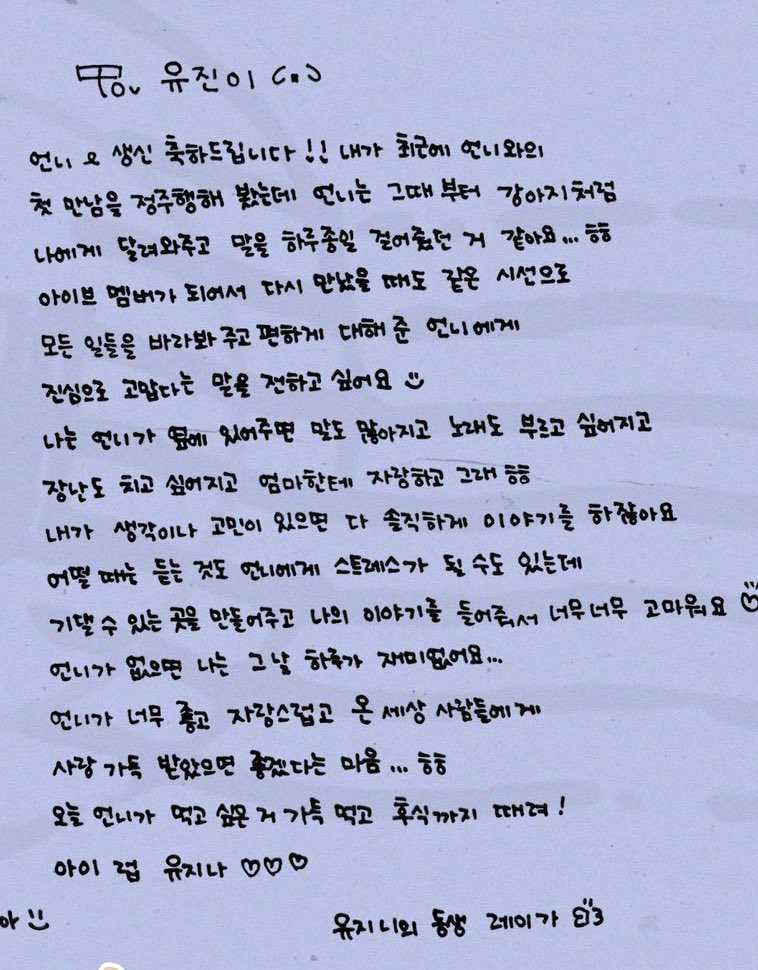 To. 유진이 (ㅍ)
언니 요 생신 축하드립니다!! 내가 최근에 언니와의
첫 만남을 정주행해 봤는데 언니는 그때부터 강아지처럼
나에게 달려와주고 말을 하루종일 걸어줬던 거 같아요... ㅎㅎ
아이브 멤버가 되어서 다시 만났을 때도 같은 시선으로
모든 일들을 바라봐 주고 편하게 대해 준 언니에게
진심으로 고맙다는 말을 전하고 싶어요
나는 언니가 옆에 있어주면 말도 많아지고 노래도 부르고 싶어지고
장난도 치고 싶어지고 엄마한테 자랑하고 그래 ㅎㅎ
내가 생각이나 고민이 있으면 다 솔직하게 이야기를 하잖아요
어떨 때는 듣는 것도 언니에게 스트레스가 될 수도 있는데
기댈 수 있는 곳을 만들어주고 나의 이야기를 들어줘서 너무너무 고마워요 ♡
언니가 없으면 나는 그날 하루가 재미없어요...
언니가 너무 좋고 자랑스럽고 온 세상 사람들에게
사랑 가득 받았으면 좋겠다는 마음... ㅎㅎ
오늘 언니가 먹고 싶은 거 가득 먹고 후식까지 때려!
아이 럽 유지나 ♡♡♡
유지니의 동생 레이가